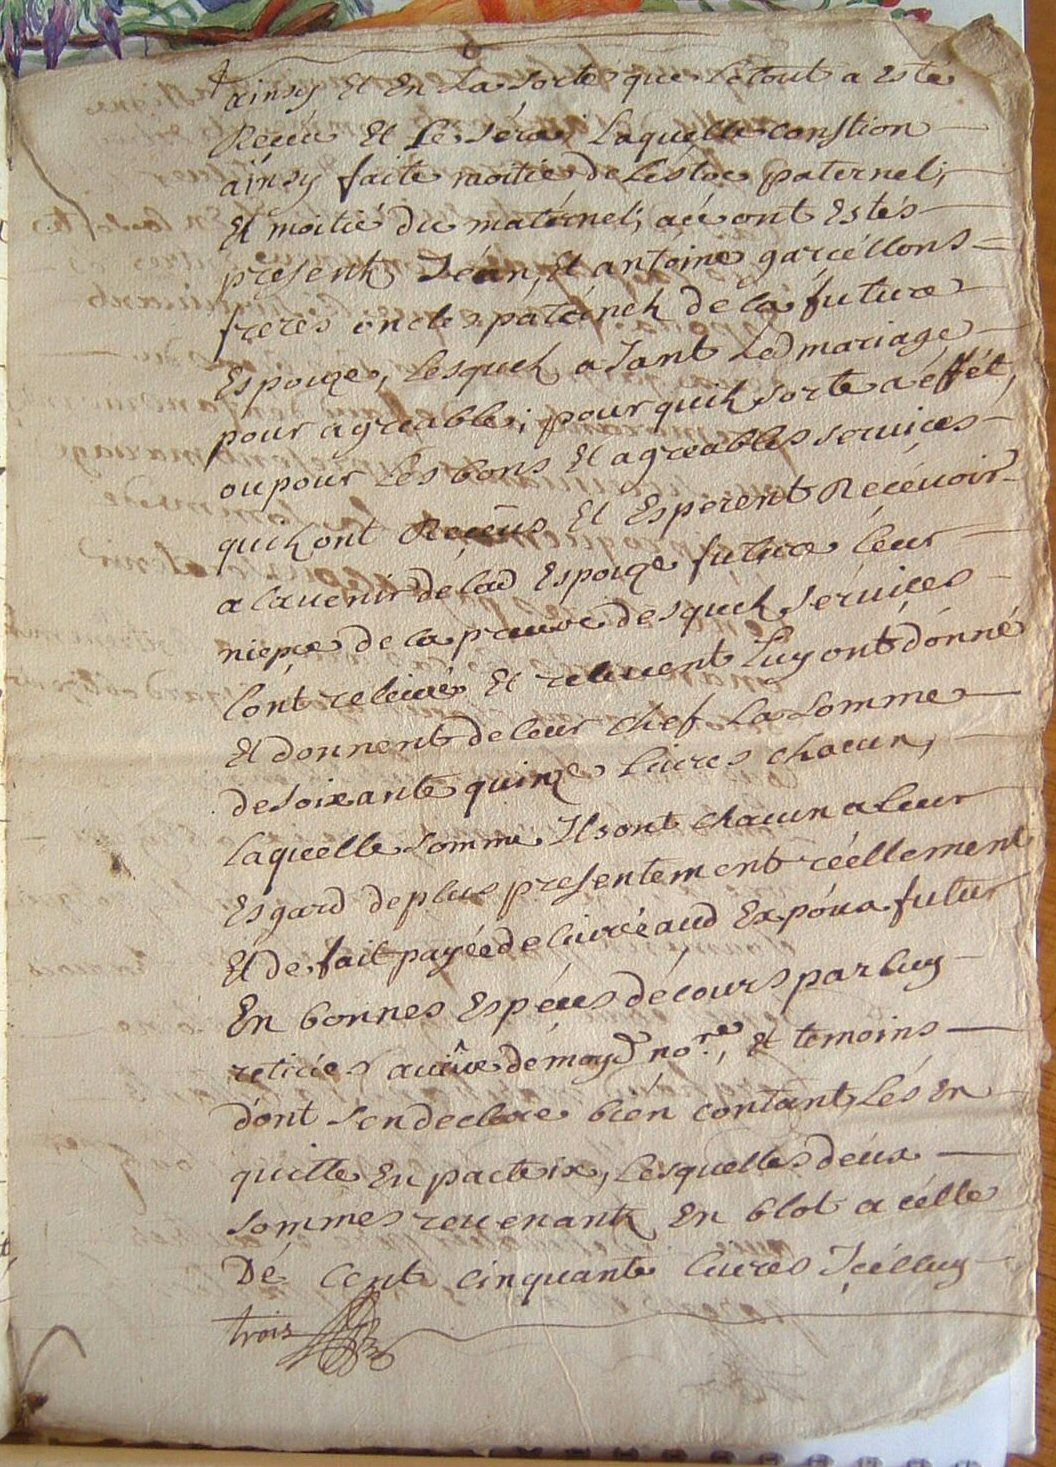 ainsy Et En La sorte que Le tout a Esté
Receu Et Le sera; Laquelle constion
ainsy faite moitié de Lestoc paternel;
Et moitié du maternel; a ce ont Estés
presentz Jéan, Et antoine garcéllons
freres oncles paternelz de la future
Espouze, Lesquelz aJant Led mariage
pour agreable; pour quilz sorte a éffét,
ou pour Les bons Et agreables services
quilz ont Receus Et Esperent Recévoir
a Lavenir de lad Espouze future Leur
niepce de la preuve desquelz sérvices
Lont relevé Et relevent Luy ont donné
Et donnent de leur chef La somme
de soixante quinze Livres chacun,
Laquelle somme Ils ont chacun a Leur
Esgard de plus presentement réellement
Et de fait payée delivrée aud Expoux futur
En bonnes Espéces de cours par luy
retirées au veue de moyd nore, Et temoins
dont sen declare bién contant, Lés En
quitte En pacte ix, Lesquelles déux
sommes revenantz En blot a célle
Dé Cent cinquante Livres Jcélluy
trois